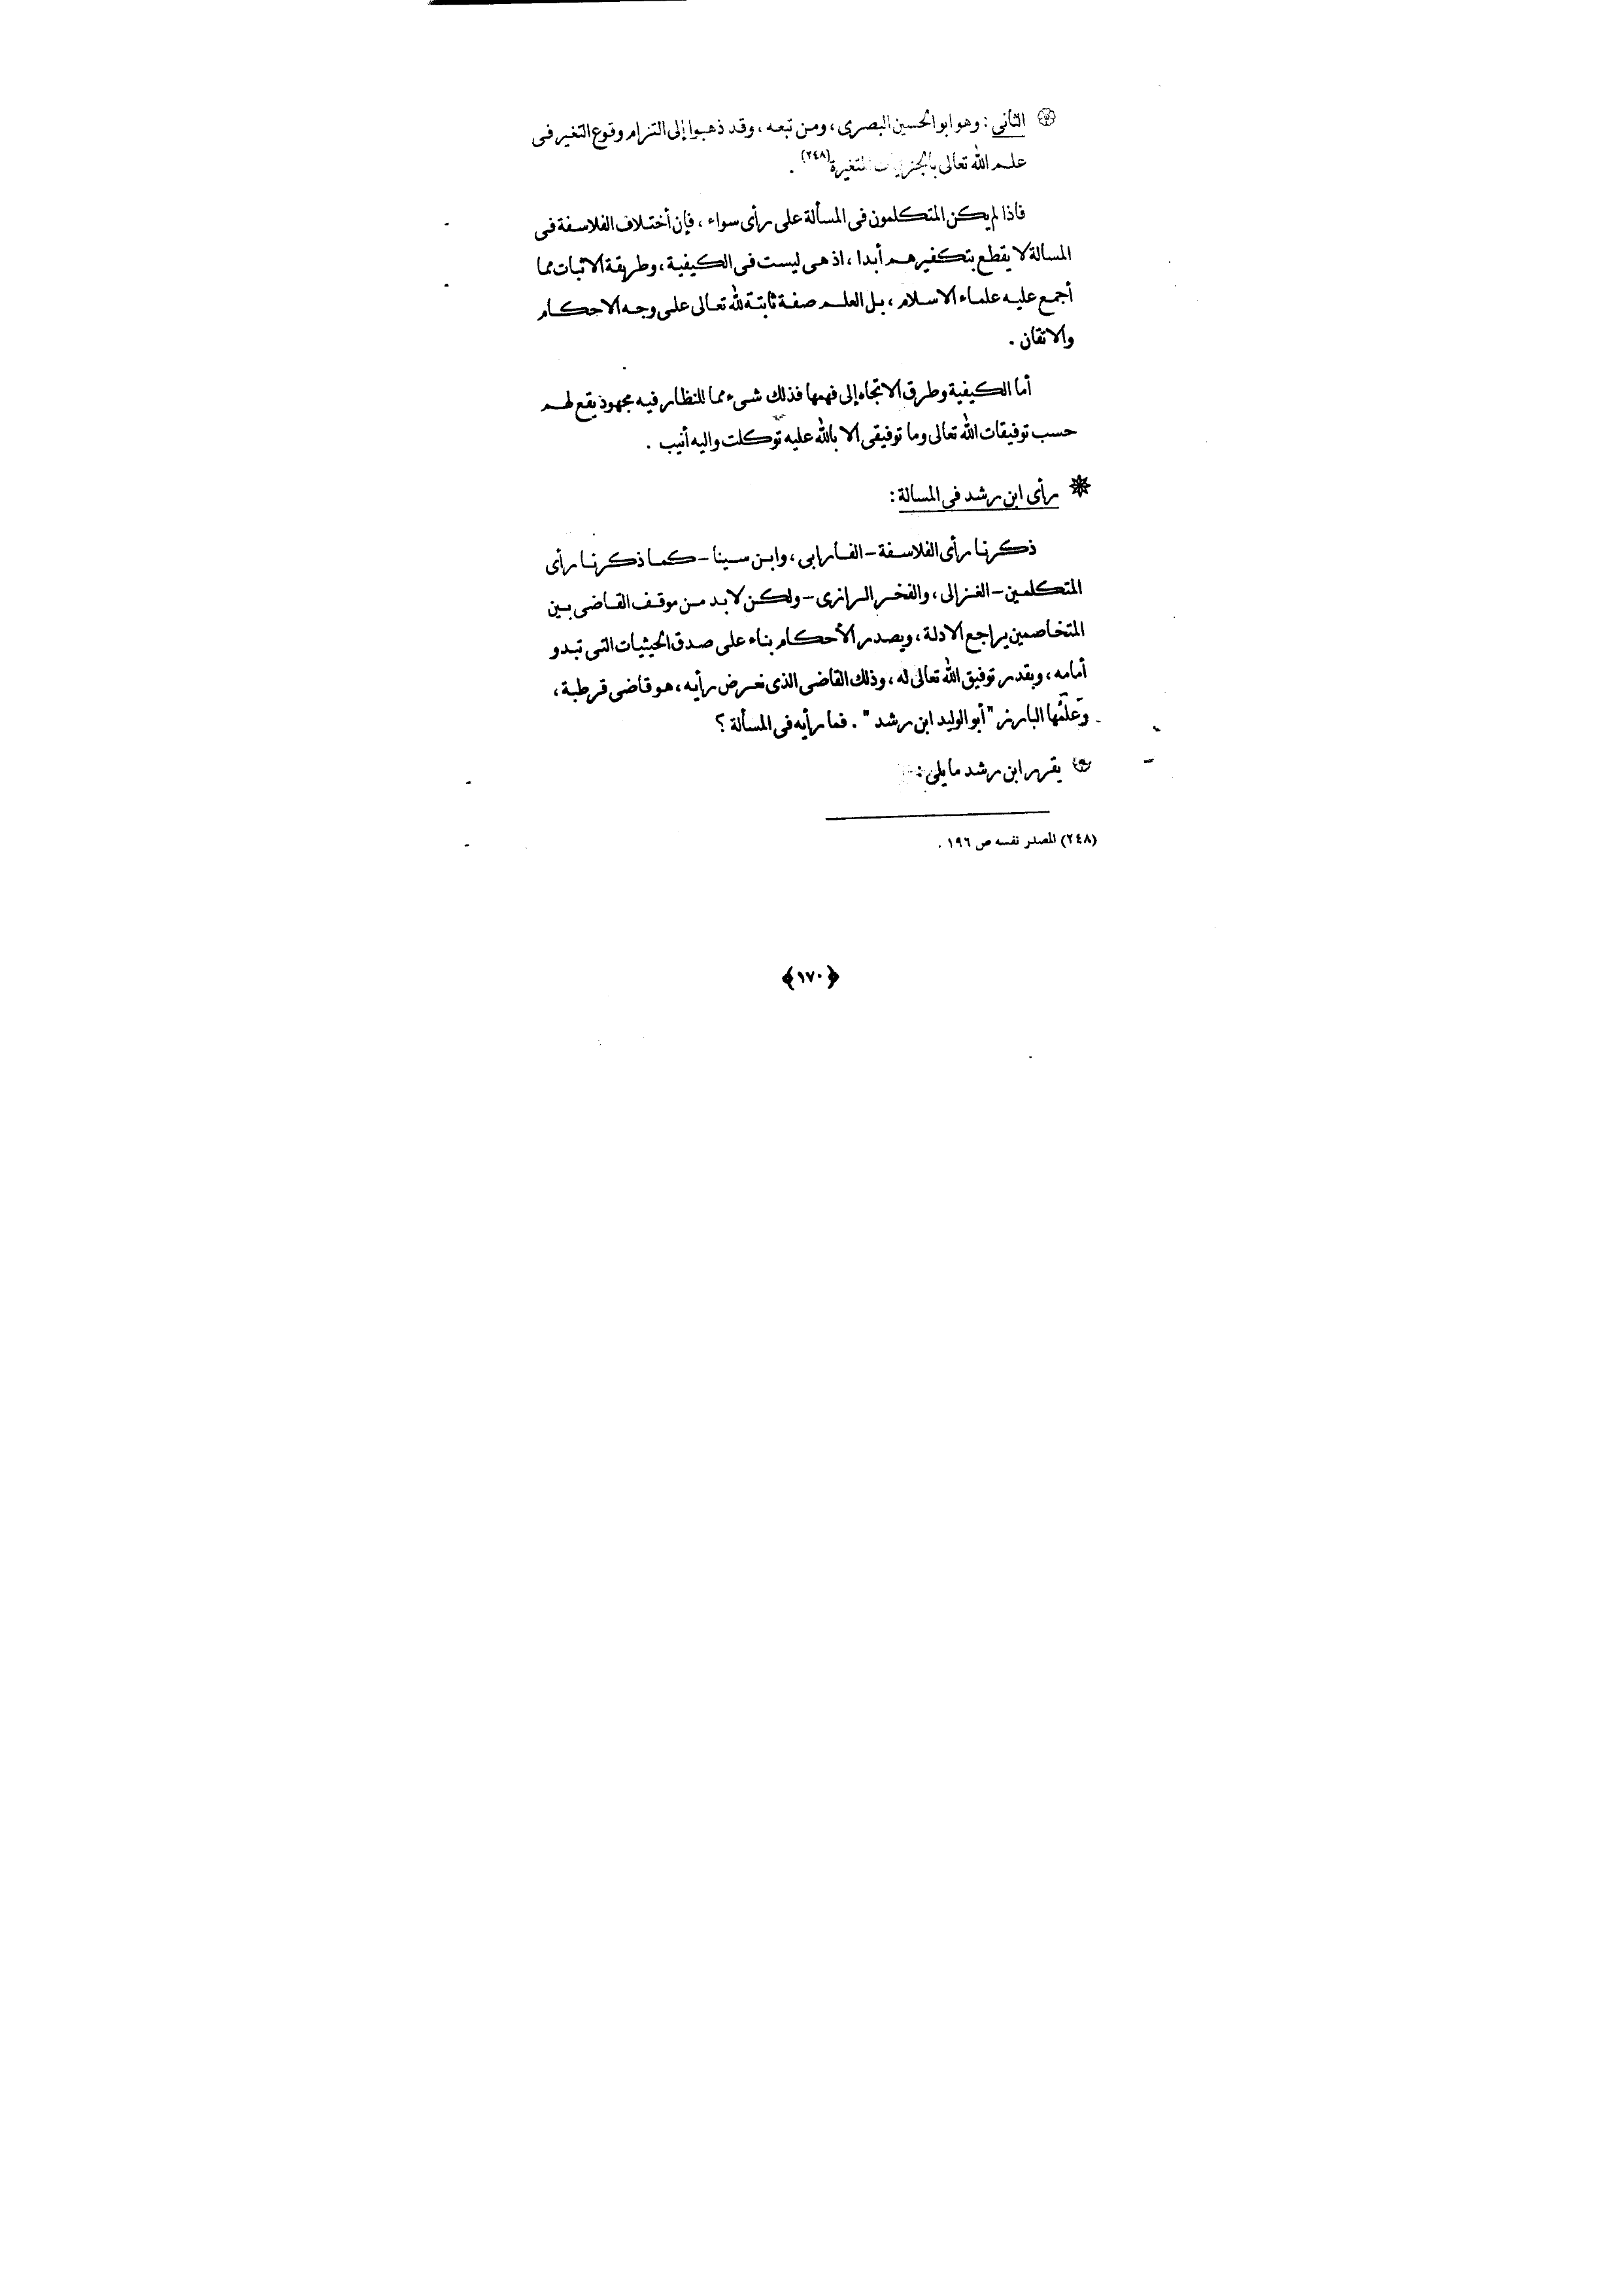 الثأنى : وهو ابو الحسين البصرى ، ومن تبعه ، وقد ذهبوا إلى التزام وقوع التغير فى
علم الله تعالى (٢٤٨) .
فاذا لم يكن المتكلمون فى المسألة على رأى سواء ، فإن أختلاف الفلاسفة فى
المسالة لا يقطع بتكفيرهم أبدا ، اذ هى ليست فى الكيفية ، وطريقة الاثبات مما
أجمع عليه علماء الاسلام ، بل العلم صفة ثابتة لله تعالى على وجه الاحكام
والاتقان .
أما الكيفية وطرق الاتجاه إلى فهمها فذلك شىء مما للنظار فيه مجهود يقع لهم
حسب توفيقات الله تعالى وما توفيقى الا بالله عليه توكلت واليه أنيب .
رأى ابن رشد فى المسالة :
ذكرنا رأى الفلاسفة - الفارابى ، وابن سينا - كما ذكرنا رأى
المتكلمين - الغزالى ، والفخر الرازى - ولكن لابد من موقف القاضى بين
المتخاصمين يراجع الادلة ، ويصدر الأحكام بناء على صدق الحيثيات التى تبدو
أمامه ، وبقدر توفيق الله تعالى له ، وذلك القاضى الذى نعرض رأيه ، هو قاضى قرطبة ،
وعلمها البارز " أبو الوليد ابن رشد " . فما رأيه فى المسألة ؟
يقرر ابن رشد ما يلى :
(٢٤٨) المصدر نفسه ص ١٩٦ .
﴿١٧٠﴾